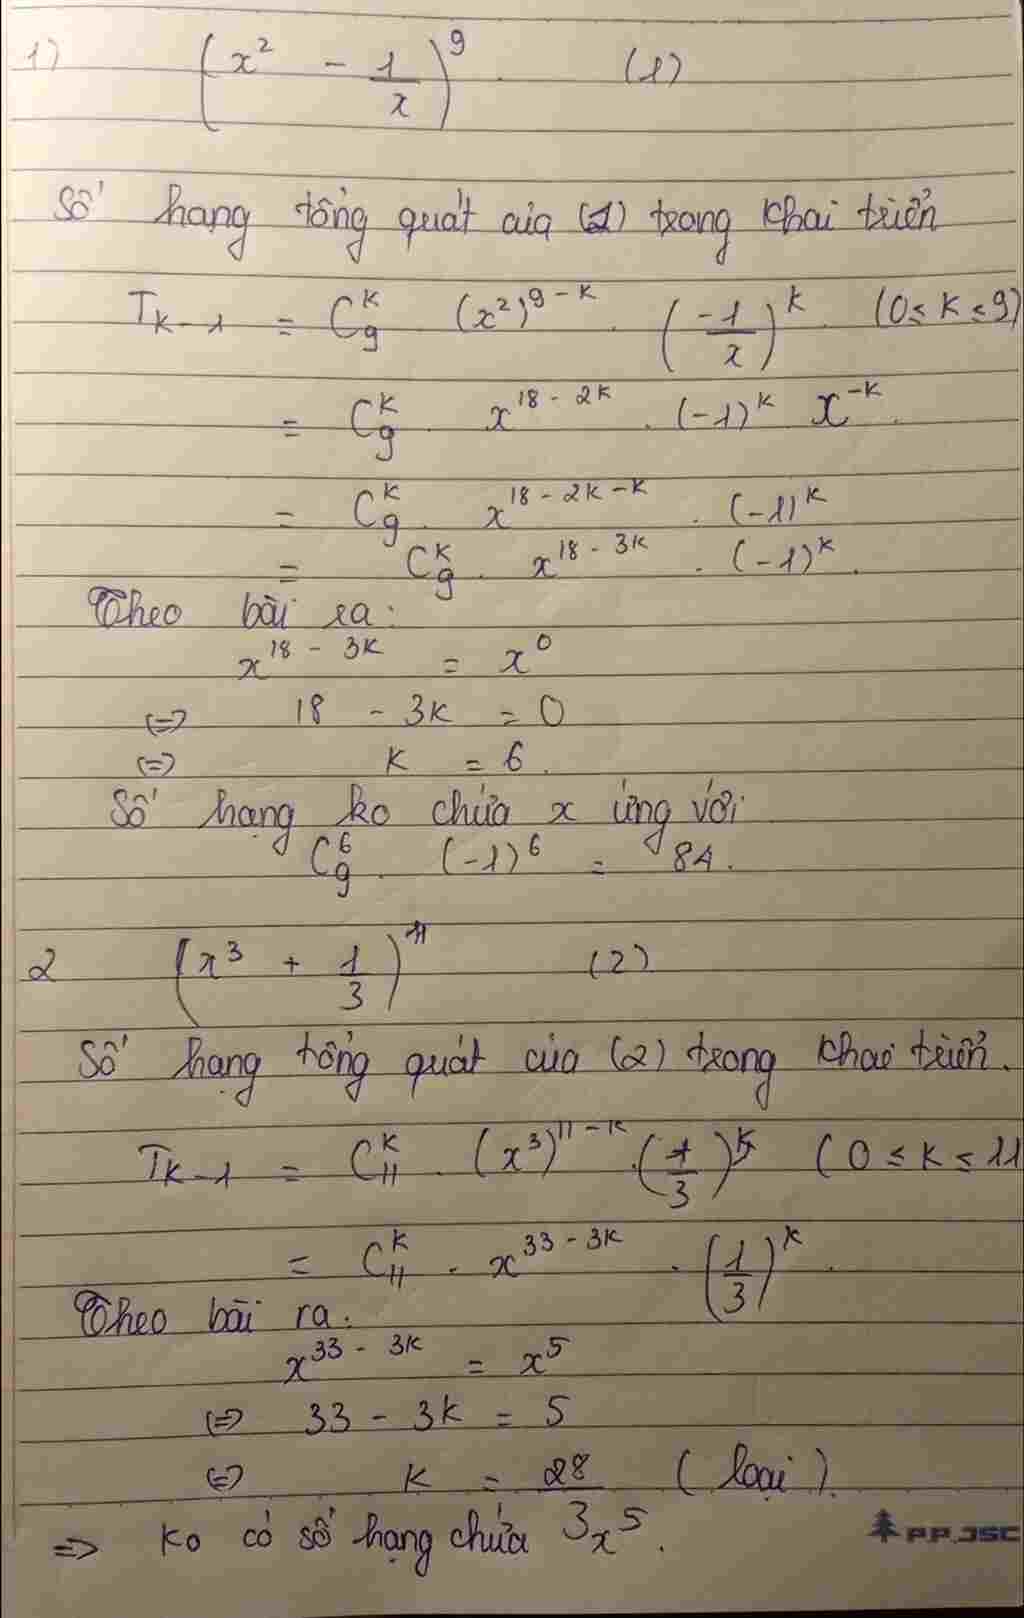 1) (x² - 1/x)⁹ (1)
Số hạng tổng quát của (1) trong khai triển
T_{k-1} = C₉ᵏ (x²)^{9-k} . (-1/x)^k (0≤k≤9)
= C₉ᵏ . x^{18-2k} . (-1)^k x^{-k}.
= C₉ᵏ . x^{18-2k-k} . (-1)^k
= C₉ᵏ . x^{18-3k} . (-1)^k.
Theo bài ra:
x^{18-3k} = x⁰
(=) 18 - 3k = 0
(=) k = 6.
Số hạng ko chứa x ứng với
C₉⁶ . (-1)⁶ = 84.
2 (x³ + 1/3)¹¹ (2)
Số hạng tổng quát của (2) trong khai triển.
T_{k-1} = C₁₁ᵏ . (x³)^{11-k} . (1/3)^k (0≤k≤11
= C₁₁ᵏ . x^{33-3k} . (1/3)^k.
Theo bài ra:
x^{33-3k} = x⁵
(=) 33 - 3k = 5
(=) k = 28/3 (loại).
=> ko có số hạng chứa x⁵.
P.P.JSC